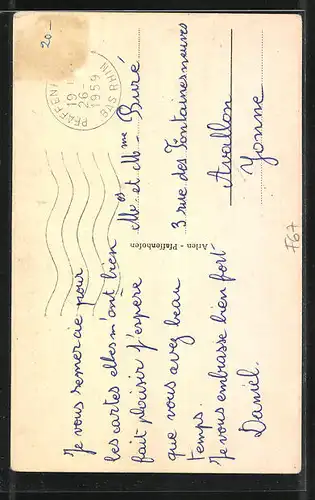 20.-
PFAFFENH
19
26
1959
BAS RHIN
Mr et Mme Buré
3 rue des Fontaines neuves
Avallon
Yonne
Arlen - Pfaffenhofen
Je vous remercie pour
les cartes elles m'ont bien
fait plaisir j'espère
que vous avez beau
temps.
Je vous embrasse bien fort
Daniel.
F67